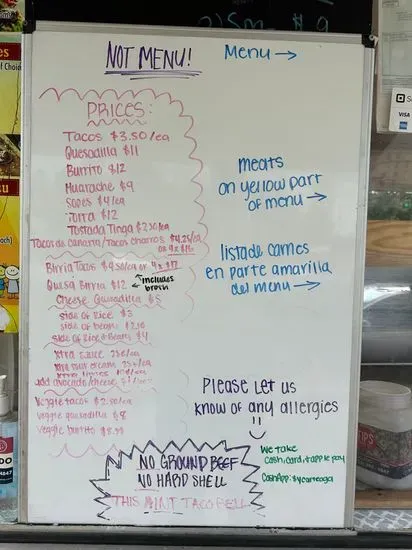 NOT MENU!
Menu →
PRICES:
Tacos $3.50/ea
Quesadilla $11
Burrito $12
Huarache $9
Sopes $4/ea
Torta $12
Tostada Tinga $2.50/ea
Tacos de Canasta/Tacos Charros $4.25/ea
or 4x$16
Birria Tacos $4.50/ea or 4x$17
Quesa Birria $12 ← includes
broth
Cheese Quesadilla $5
Side of Rice $3
side of bean $2.50
side of Rice & Beans $4
xtra sauce 25¢/ea
xtra sour cream 25¢/ea
xtra limes
add avocado/cheese
Veggie tacos $2.50/ea
veggie quesadilla $8
veggie burrito
meats
on yellow part
of menu →
lista de carnes
en parte amarilla
del menu →
Please let us
know of any allergies
We take
cash, card, & apple pay
CashApp:
NO GROUND BEEF
NO HARD SHELL
THIS AINT TACO BELL
VISA
TIPS